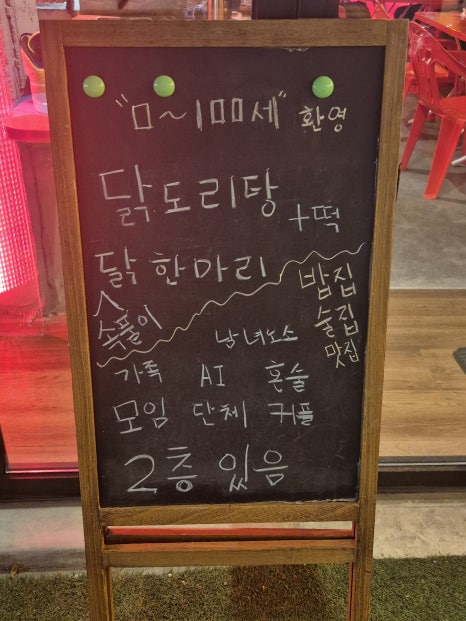 "0~100세" 환영
닭도리탕 +떡
닭 한마리
속풀이
밥집
술집
맛집
남녀노소
가족 AI 혼술
모임 단체 커플
2층 있음